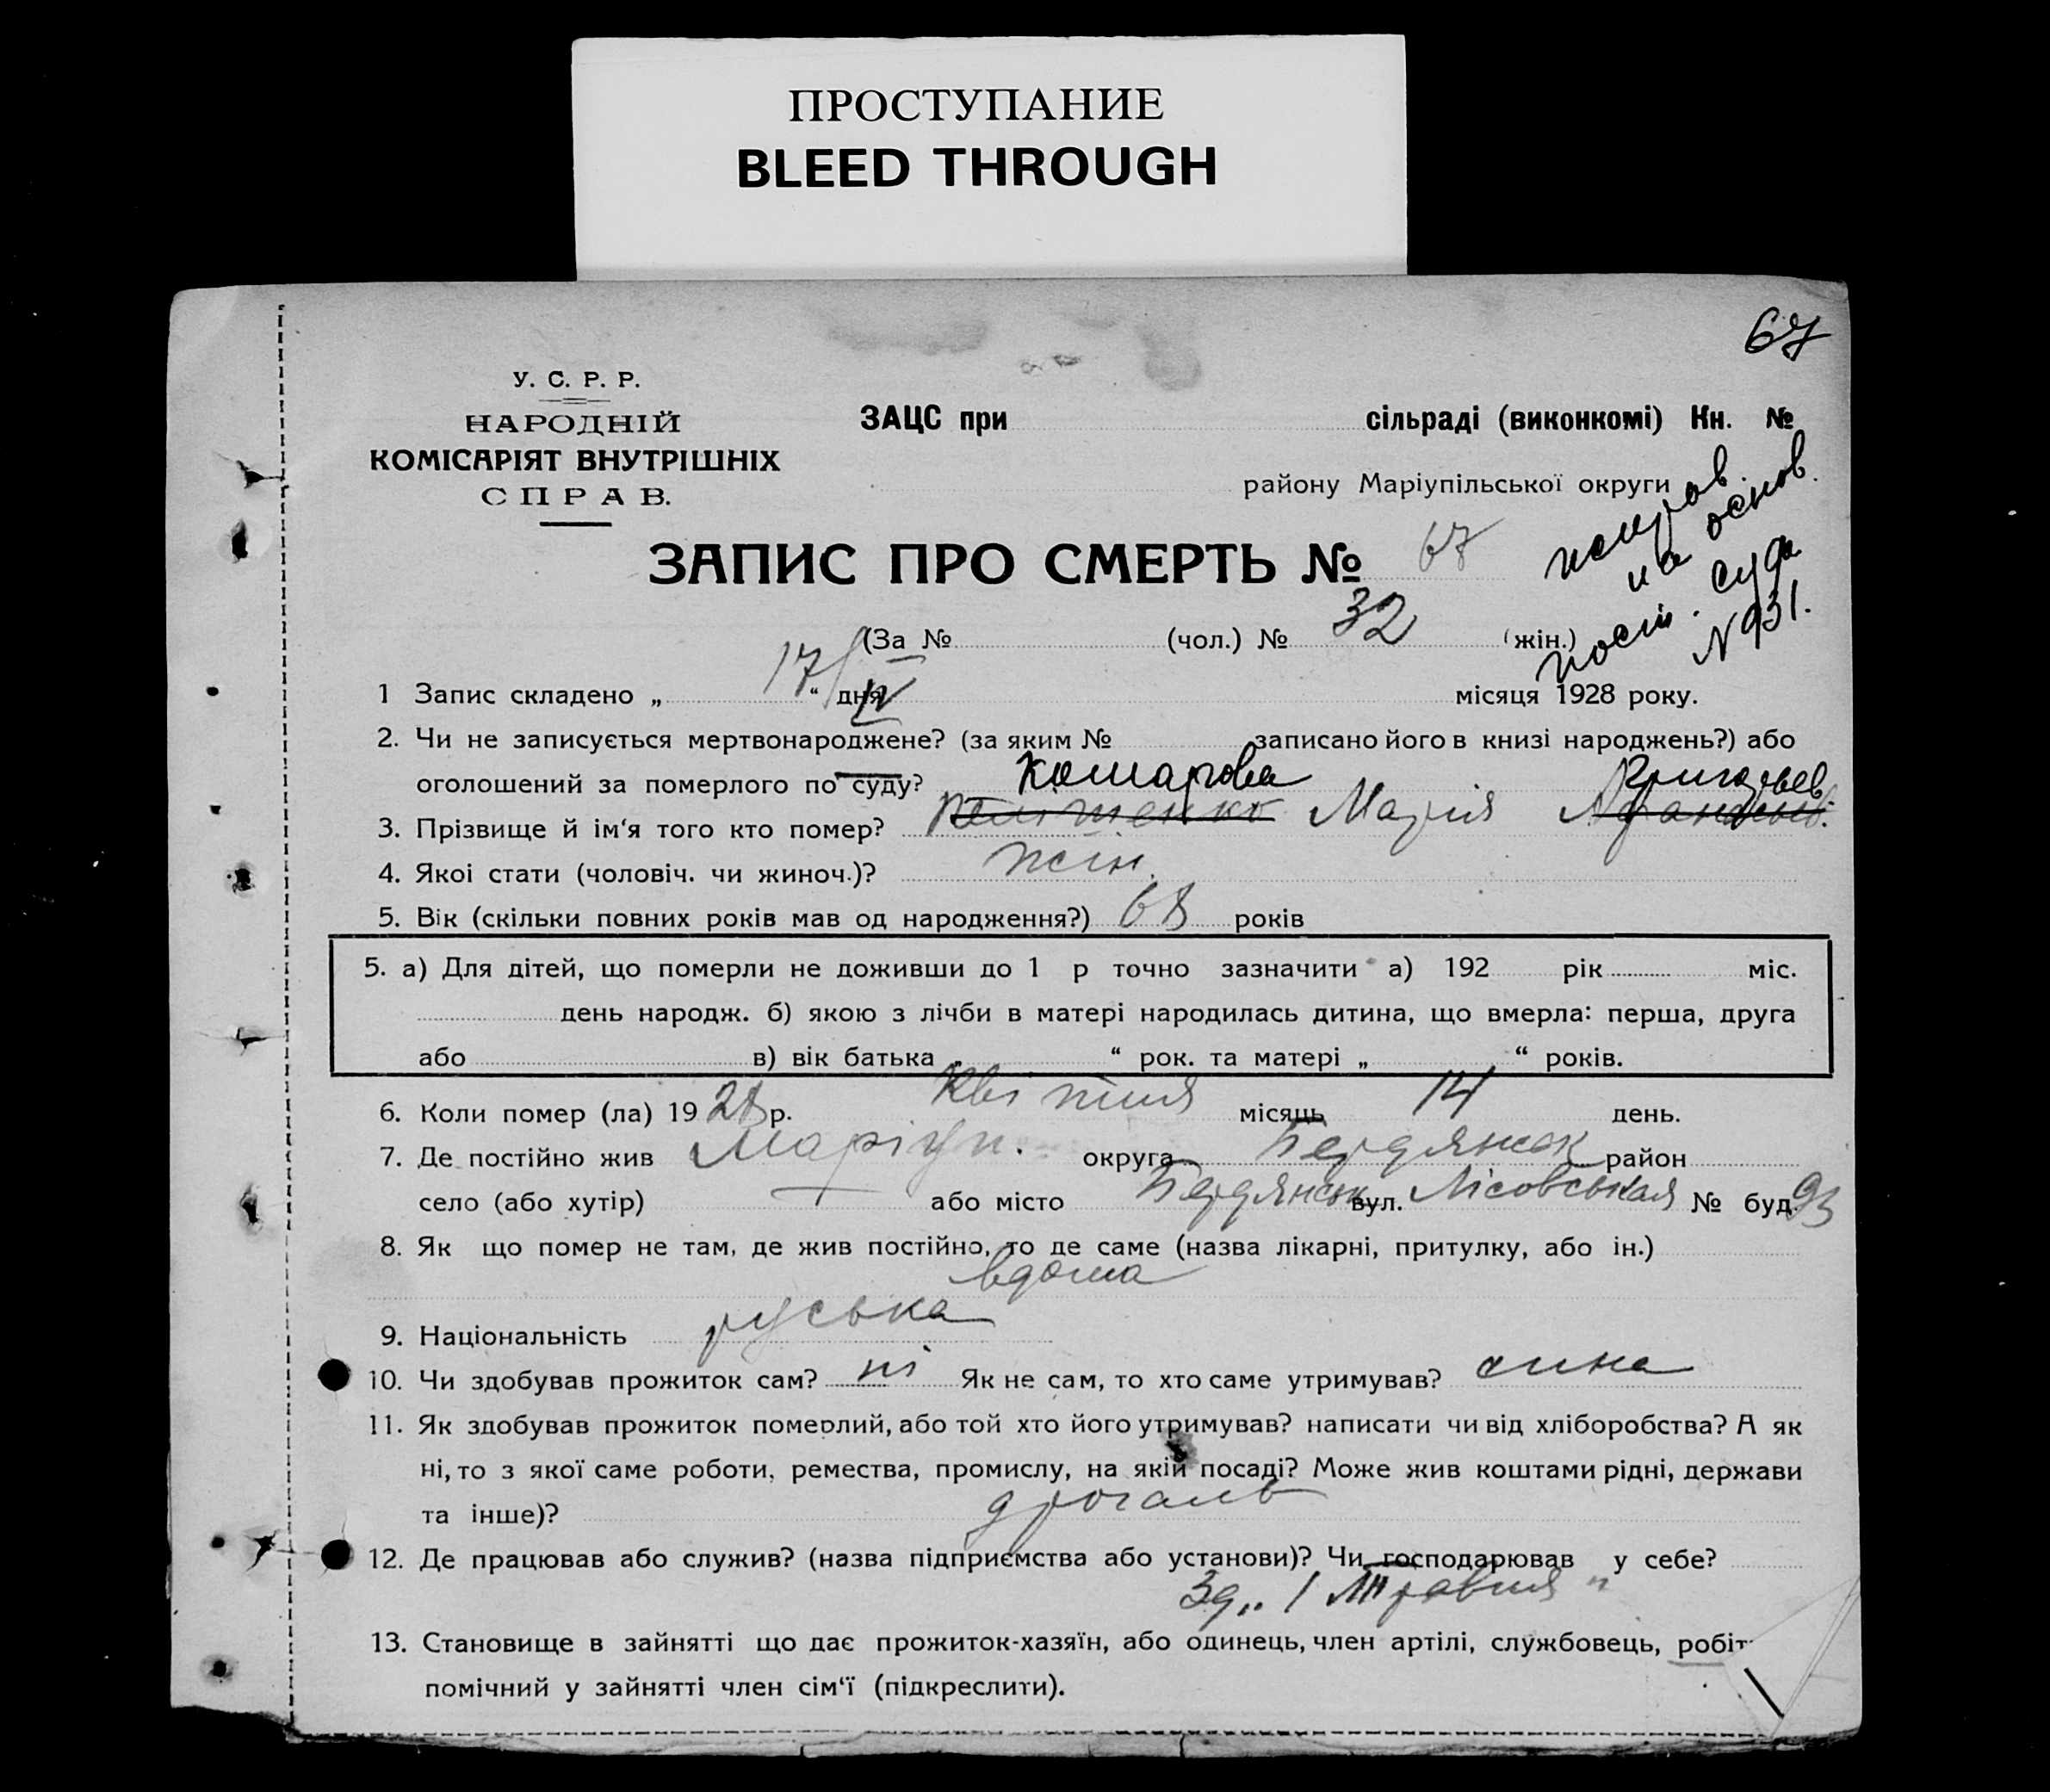 ПРОСТУПАНИЕ
BLEED THROUGH
67
У. С. Р. Р.
НАРОДНІЙ
КОМІСАРІЯТ ВНУТРІШНІХ
СПРАВ.
ЗАЦС при сільраді (виконкомі) Кн. №
району Маріупільської округи
исправ.
на основ.
пост. суда
N 931.
ЗАПИС ПРО СМЕРТЬ № 67
(За № (чол.) № 32 (жін.)
1 Запис складено „ 17/IV “ дня місяця 1928 року.
2. Чи не записується мертвонароджене? (за яким № записано його в книзі народжень?) або
оголошений за померлого по суду?
Комарова Григорьев.
3. Прізвище й ім‘я того кто помер? Марія
4. Якоі стати (чоловіч. чи жиноч.)? жін.
5. Вік (скільки повних років мав од народження?) 68 років
5. а) Для дітей, що померли не доживши до 1 р точно зазначити а) 192 рік міс.
день народж. б) якою з лічби в матері народилась дитина, що вмерла: перша, друга
або в) вік батька „ “ рок. та матері „ “ років.
6. Коли помер (ла) 1928 р. Квітня місяць 14 день.
7. Де постійно жив Маріуп. округа Бердянськ район
село (або хутір) — або місто Бердянськ вул. Лісовська № буд. 93
8. Як що помер не там, де жив постійно, то де саме (назва лікарні, притулку, або ін.)
вдома
9. Національність руська
10. Чи здобував прожиток сам? ні Як не сам, то хто саме утримував? сина
11. Як здобував прожиток померлий, або той хто його утримував? написати чи від хліборобства? А як
ні, то з якої саме роботи, ремества, промислу, на якій посаді? Може жив коштами рідні, держави
та інше)? дрогаль
12. Де працював або служив? (назва підприємства або установи)? Чи господарював у себе?
Зд „1 Травня“
13. Становище в зайнятті що дає прожиток-хазяїн, або одинець, член артілі, службовець, робіт
помічний у зайнятті член сім‘ї (підкреслити).